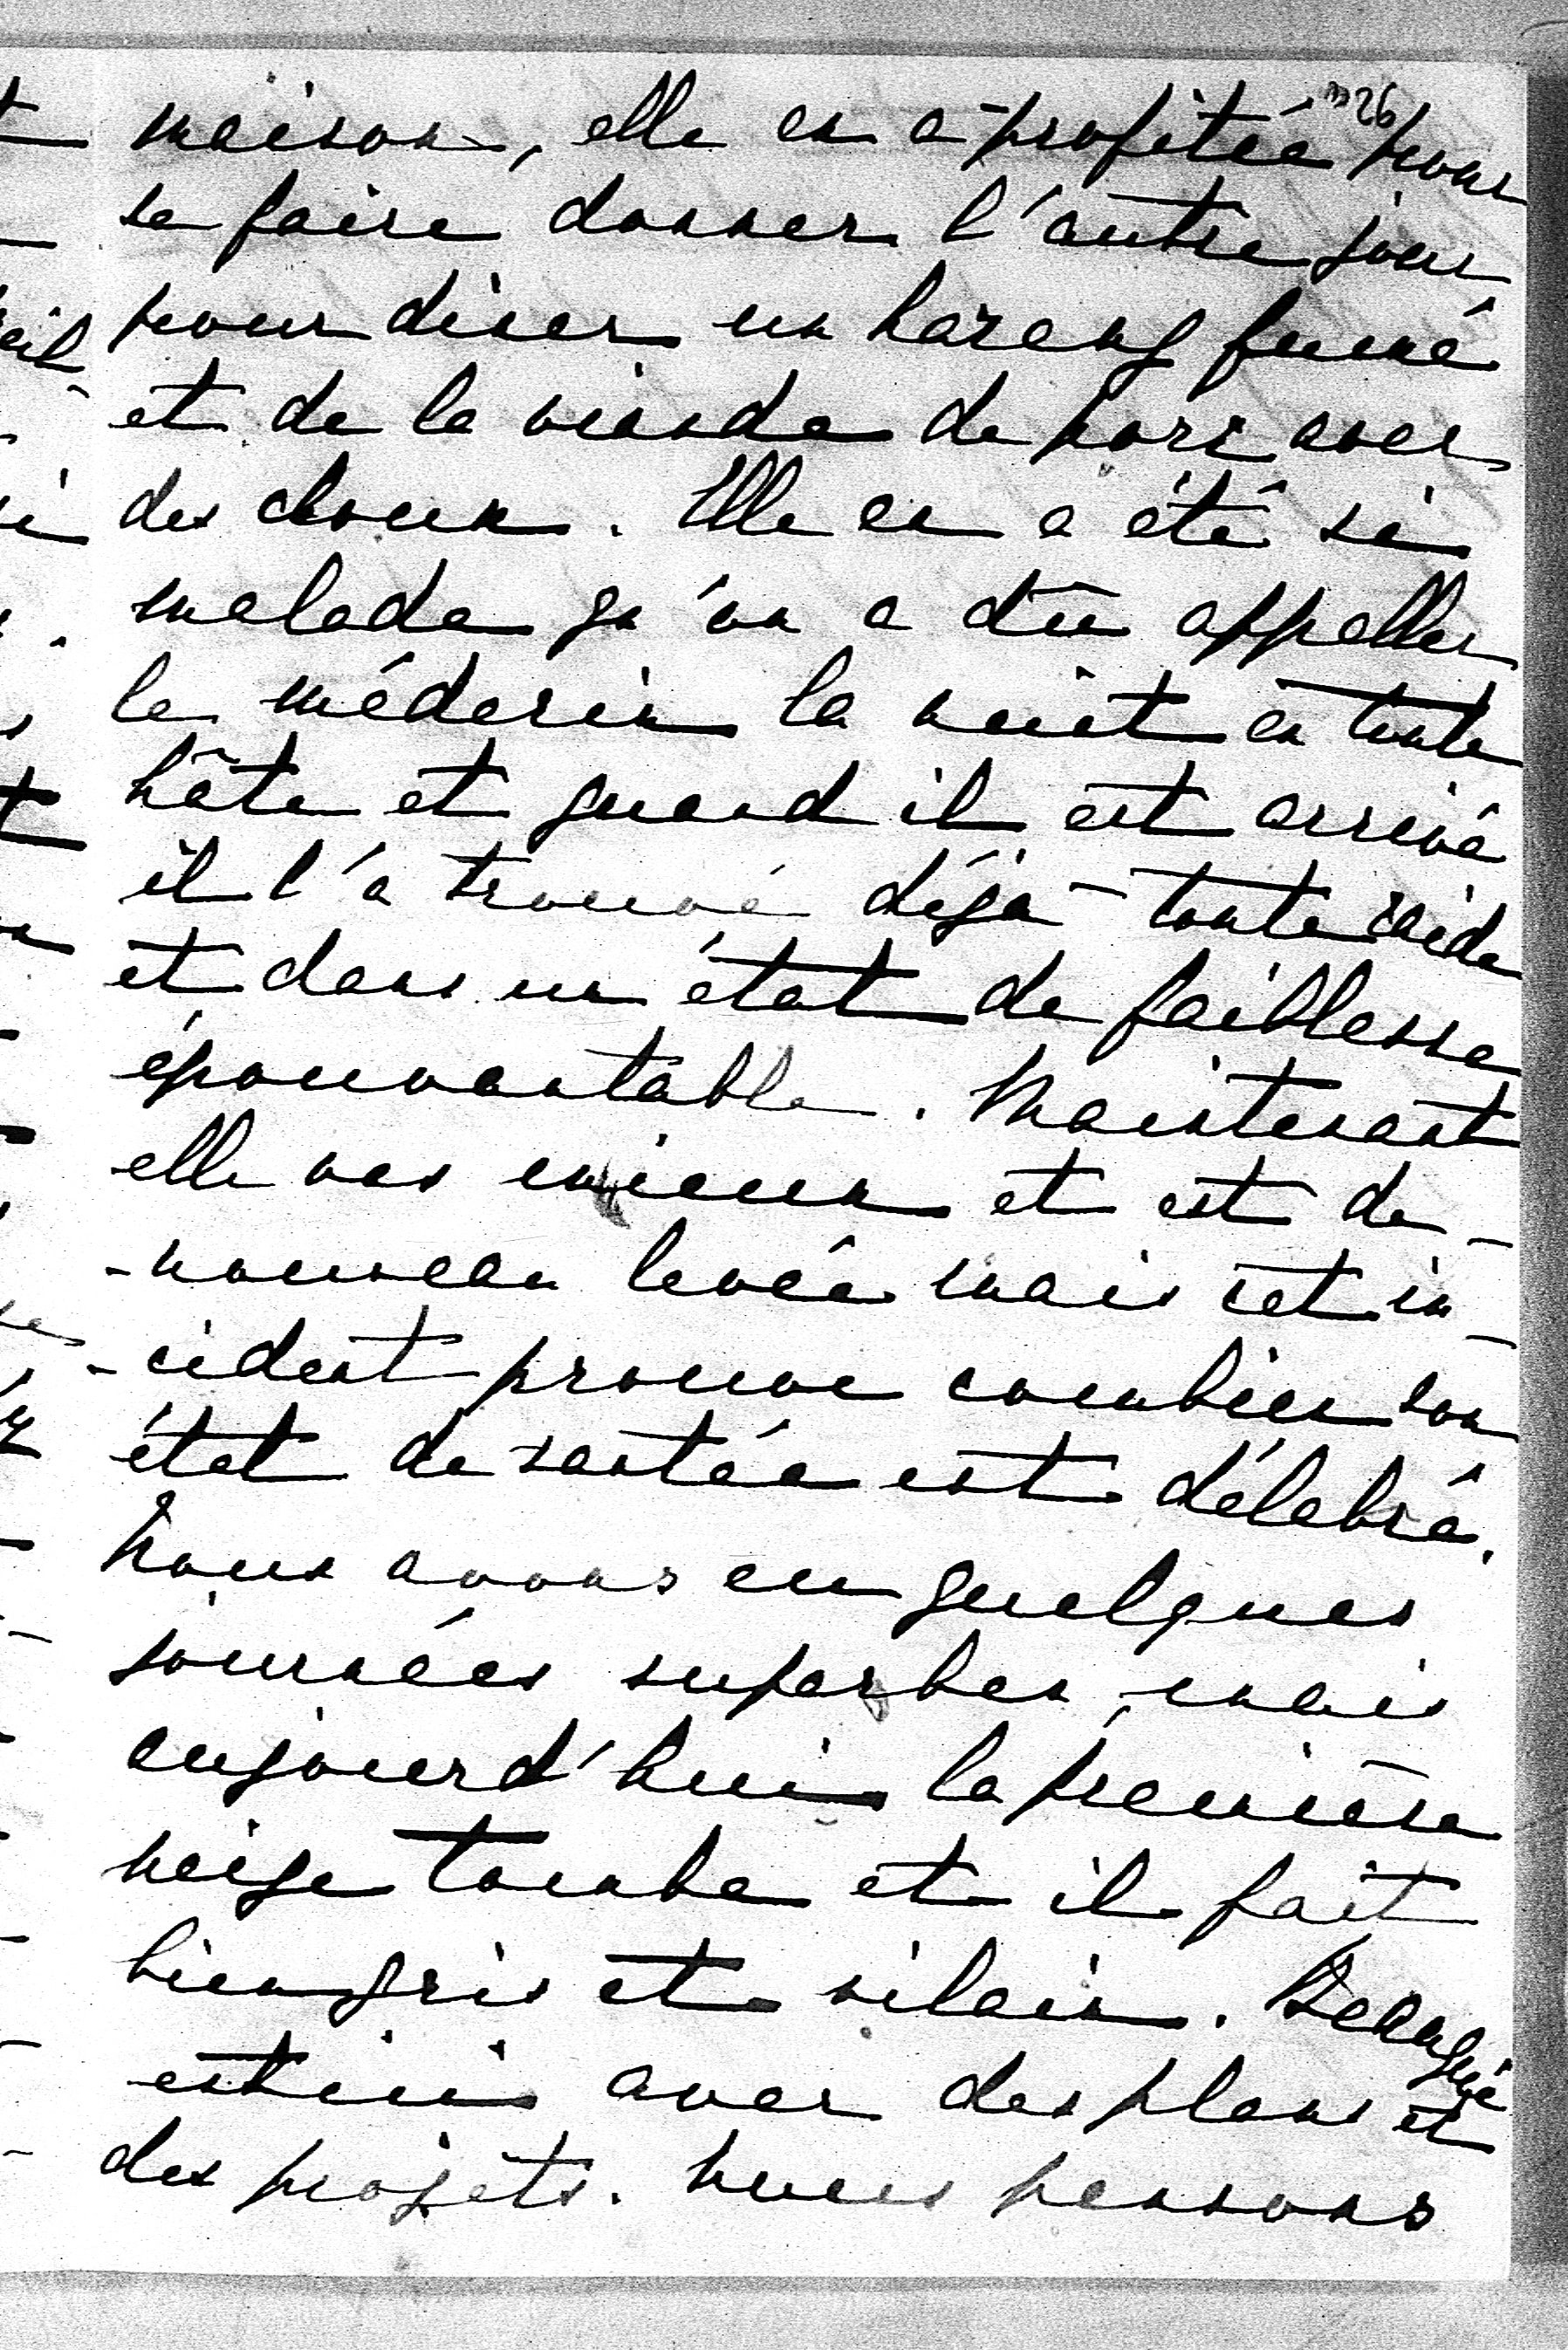 26
maison, elle en a profitée pour
se faire donner l'autre jour
pour diner un hareng fumé
et de la viande de porc avec
des choux. Elle en a été si
malade qu'on a dû appeller
le médecin la nuit en toute
hâte et quand il est arrivé
il l'a trouvé déjà toute raide
et dans un état de faiblesse
épouvantable. Maintenant
elle vas mieux et est de-
-nouveau levée mais cet in-
-cident prouve combien son
état de santée est délabré.
Nous avons eu quelques
journées superbes, mais
aujourd'hui la première
neige tombe et il fait
bien gris et vilain.
est ici avec des plans et
des projets. Nous pensons